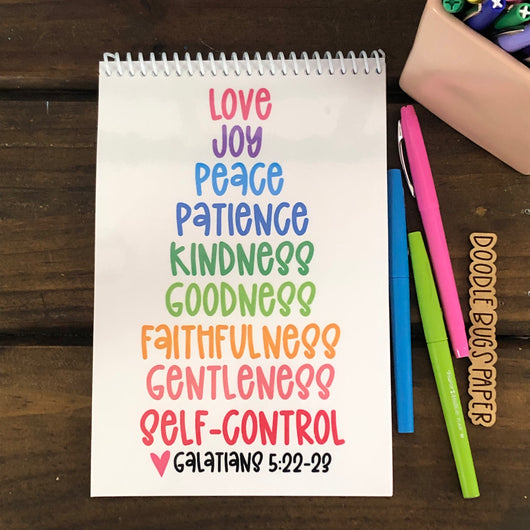 LOVE
JOY
Peace
PaTIENCE
KINDNESS
GOODNESS
FaiTHFULNESS
GENTLENESS
SELF-CONTROL
GaLaTians 5:22-23
DOODLE BUGS PAPER